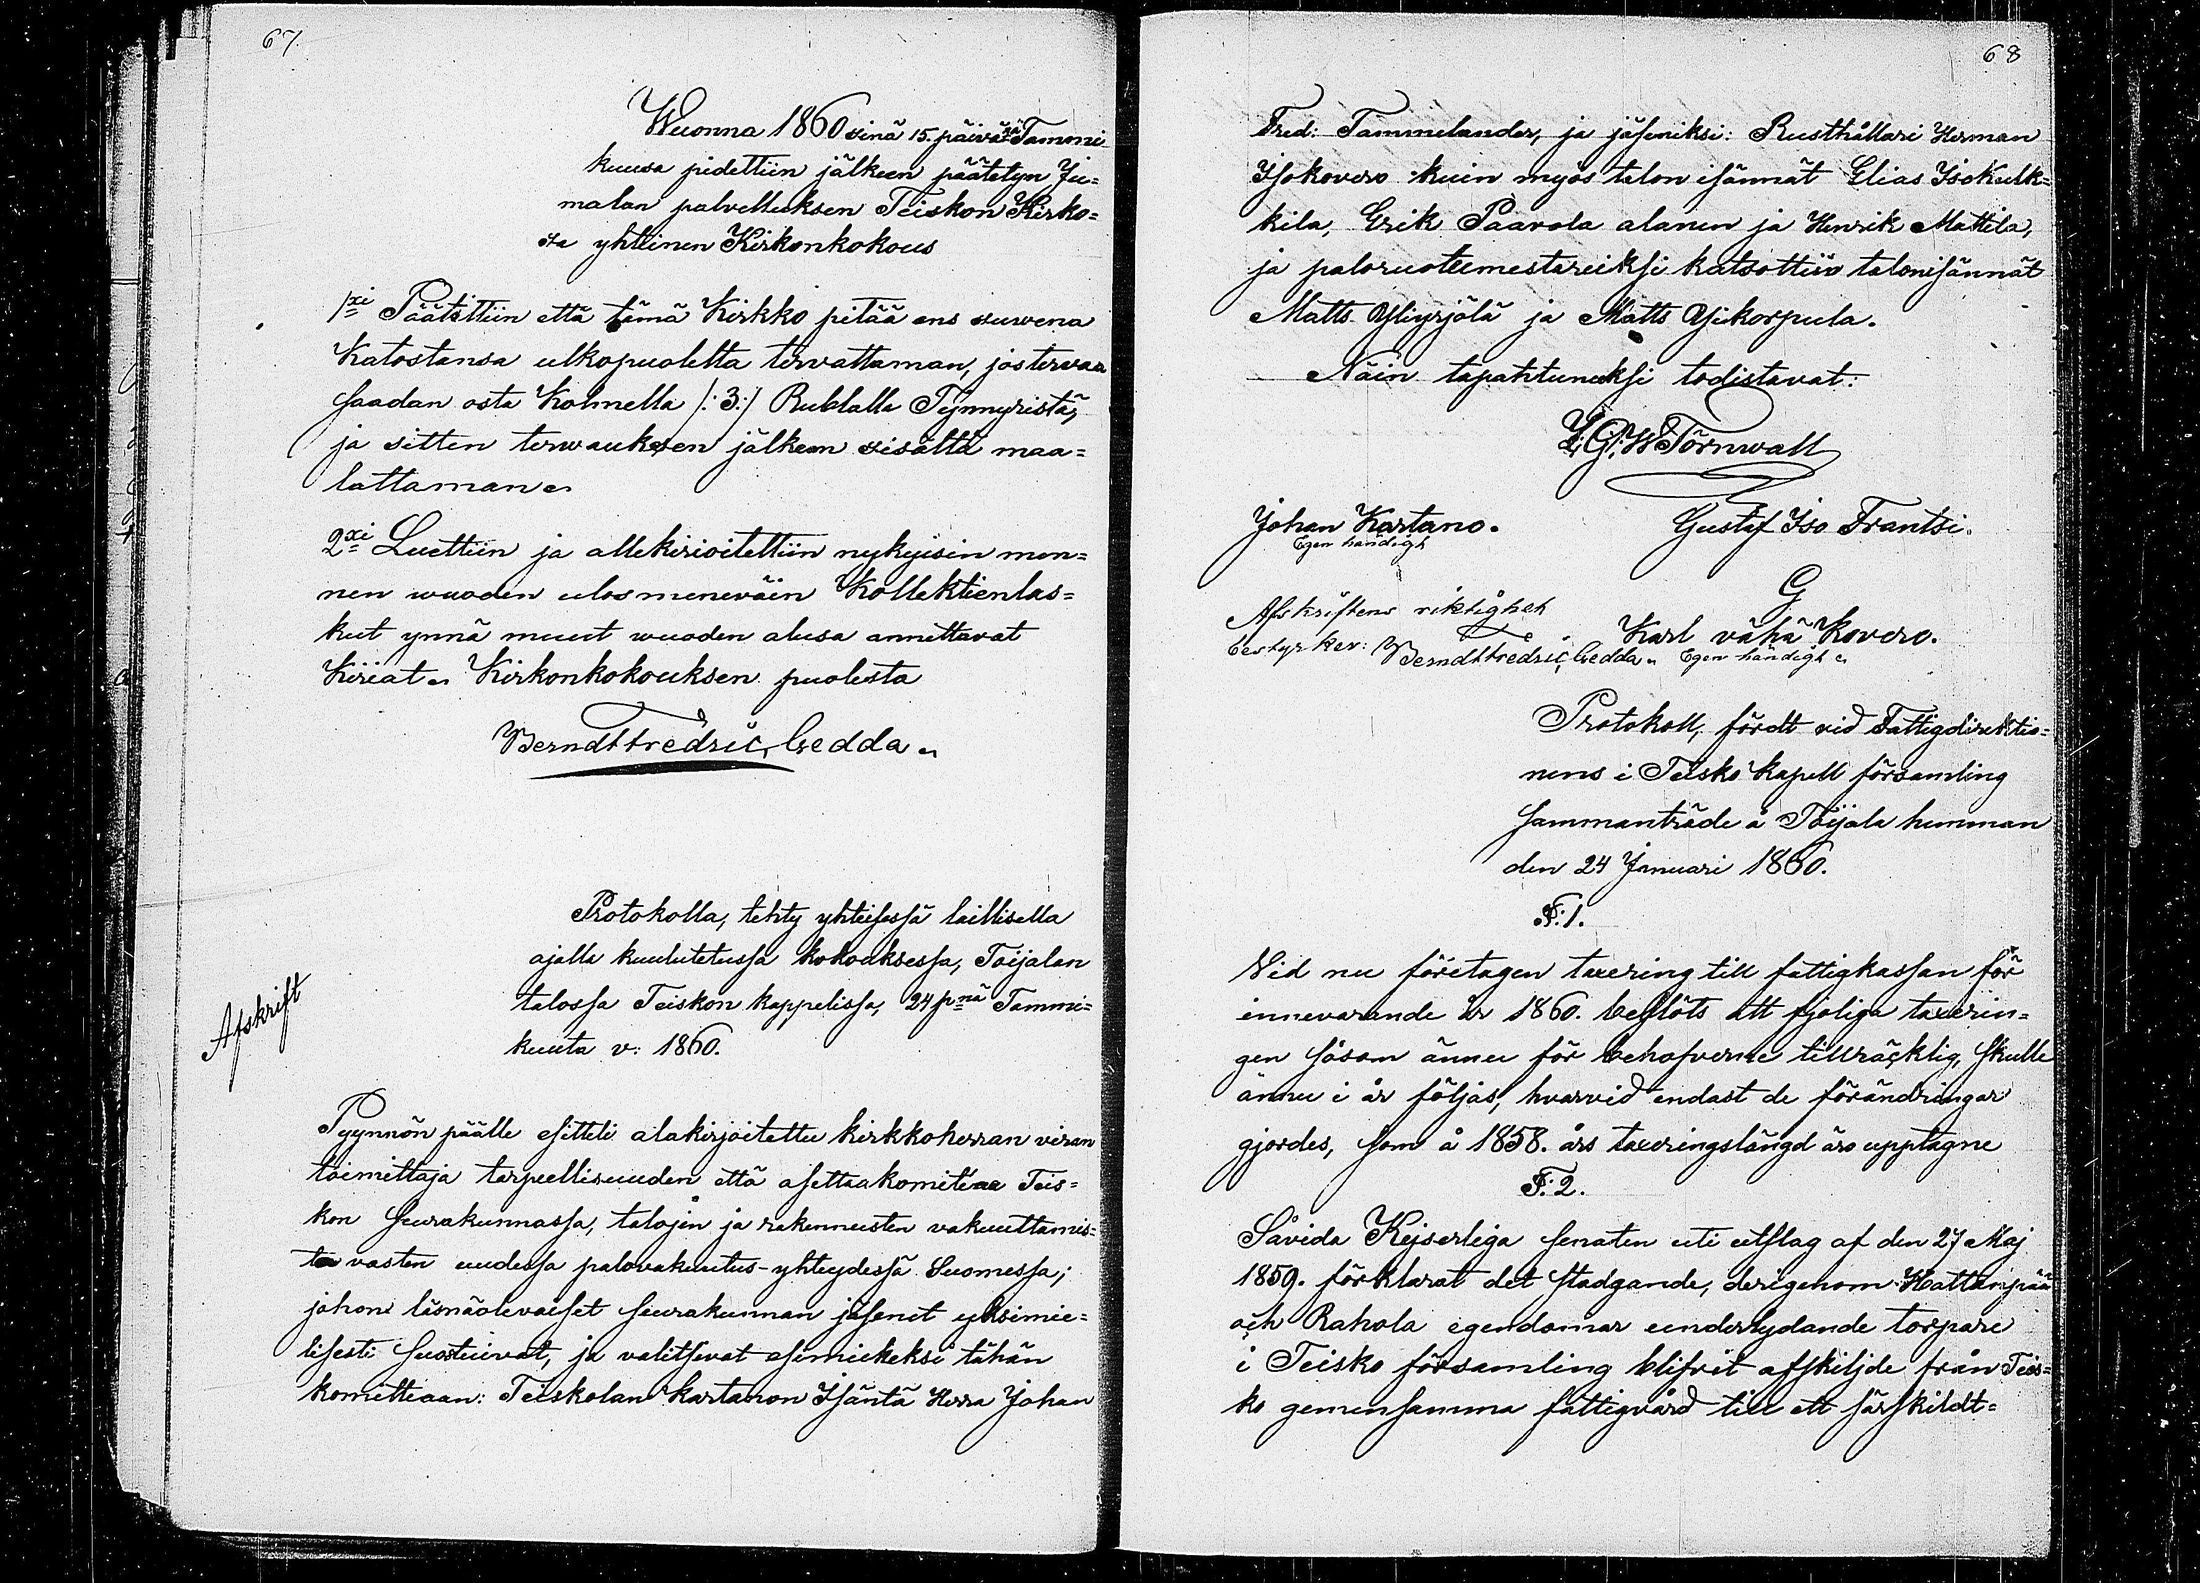 67.
Wuonna 1860 sinä 15. päivänä Tammi-
kuusa pidettiin jälkeen päätetyn Ju=
malan palvelluksen Teiskon Kirko=
sa yhteinen Kirkonkokous
1xi Päätettiin että tämä Kirkko pitää ens suwena
Katostansa ulkopuolelta tervattaman, jos tervaa
saadan osta Kolmella /:3:/ Rublalla Tynnyristä,
ja sitten terwauksen jälkeen sisältä maa=
lattaman.
2xi Luettiin ja allekirioitettiin nykyisin men=
nen wuoden ulosmenewäin Kollektienlas=
kut ynnä muut wuoden alusa annettavat
Kiriat. Kirkonkokouksen puolesta
Berndt Fredric Gedda.
Afskrift
Protokolla, tehty yhteisessä laillisella
ajalla kuulutetussa kokouksessa, Toijalan
talossa Teiskon kappelissa, 24 pnä Tammi=
kuuta v: 1860.
Pyynnön päälle esitteli alakirjoitettu kirkkoherran viran
toimittaja tarpeellisuuden että asettaa komitean Teis=
kon seurakunnassa, talojen ja rakennusten vakuuttamis=
ta vasten uudessa palovakuutus-yhteydessä Suomessa;
johon läsnäolevaiset seurakunnan jäsenet yksimie=
lisesti suostuivat, ja valitsivat esimieheksi tähän
komitteaan: Teiskolan kartanon Isäntä Herra Johan
68
Fred: Tammelander, ja jäseniksi: Rusthållari Herman
Isokovero kuin myös talon isännät Elias Isokulk=
kila, Erik Paavola alanen ja Henrik Mattila,
ja paloruotumestareiksi katsottiin talonisännät
Matts Yliyrjölä ja Matts Ylikorpula.
Näin tapahtuneeksi todistavat:
G. W. Törnwall
Johan Kartano.
Egen händigt
Gustaf Iso Frantsi.
G
Karl vähä Kovero.
Egen händigt
Afskriftens riktighet
bestyrker: Berndt Fredric Gedda.
Protokoll, fördt vid Fattigdirektio=
nens i Teisko kapell församling
sammanträde å Toijala hemman
den 24 Januari 1860.
§:1.
Vid nu företagen taxering till fattigkassan för
innevarande år 1860. beslöts att fjoliga taxerin=
gen såsom ännu för behofverne tillräcklig, skulle
ännu i år följas, hvarvid endast de förändringar
gjordes, som å 1858. års taxeringslängd äro upptagne
§:2.
Såvida Kejserliga senaten uti utslag af den 27 Maj
1859. förklarat det stadgande, derigenom Hattanpää
och Rahola egendomar underlydande torpare
i Teisko församling blifvit afskiljde från Teis=
ko gemensamma fattigvård till ett särskildt=